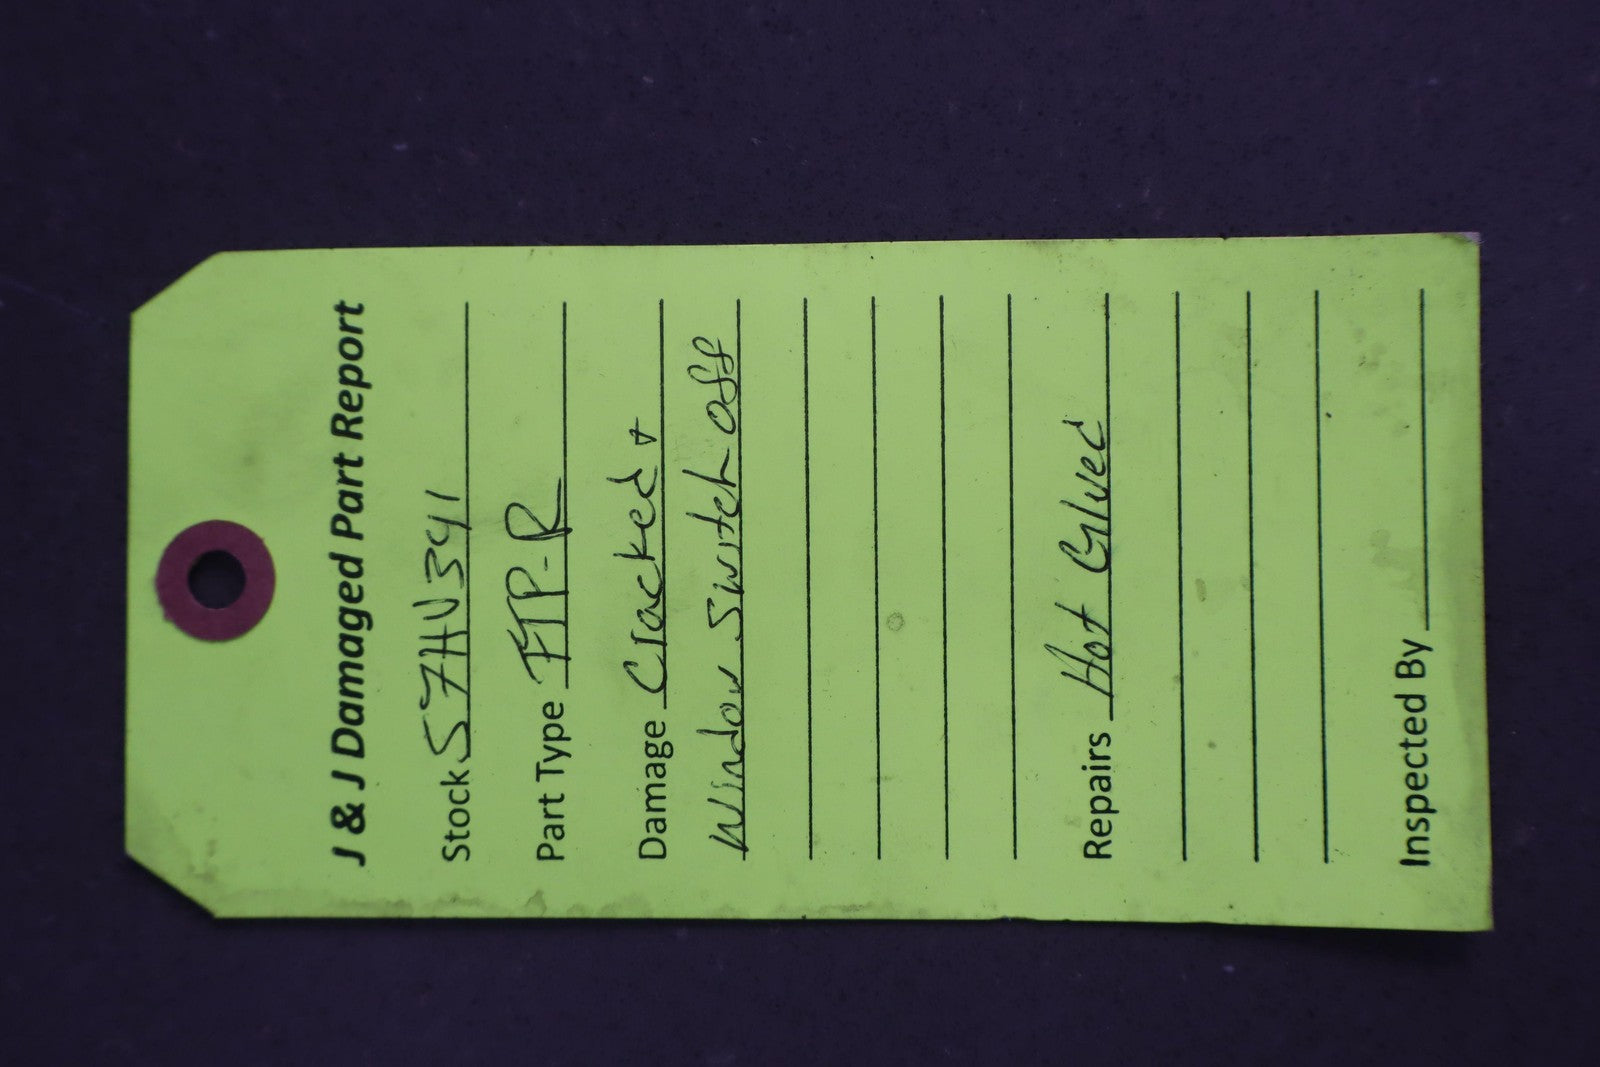 J & J Damaged Part Report
Stock S7HV341
Part Type FTP-R
Damage Cracked +
Window Switch off
Repairs Hot Glued
Inspected By